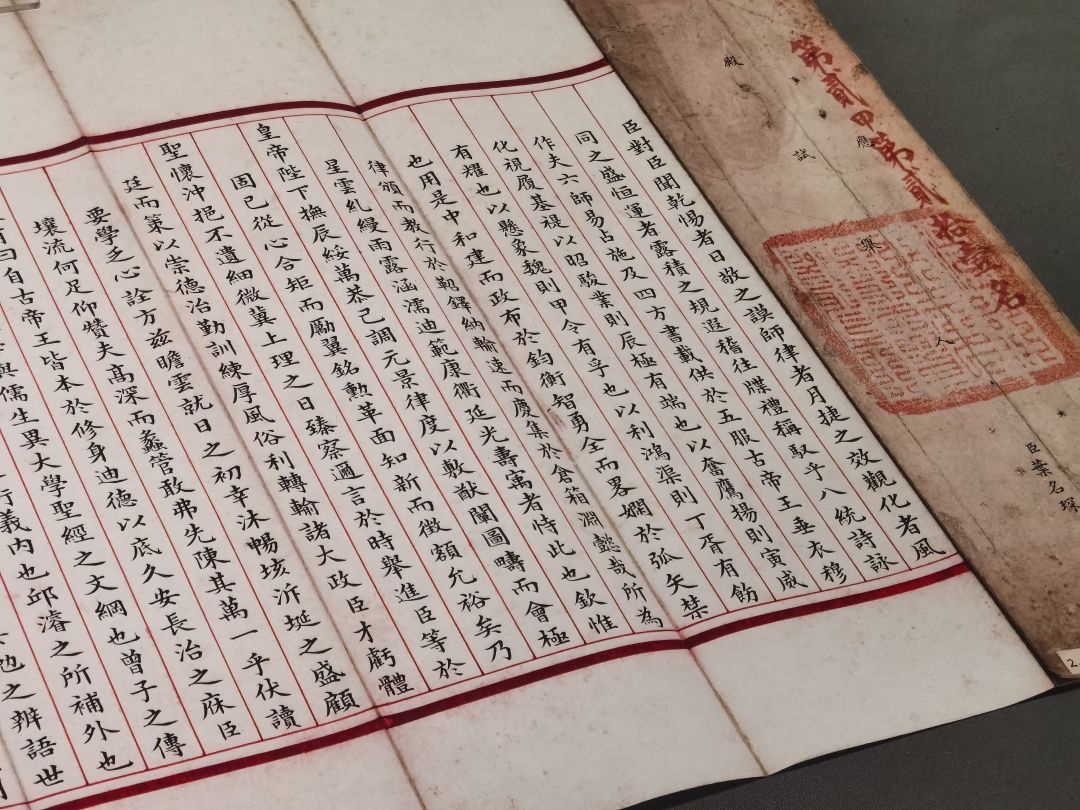 第貳甲第貳拾壹名
應
殿試舉人臣葉名琛
臣對臣聞乾惕者日敬之謨師律者月捷之效觀化者風
同之盛恒運者露積之規遐稽往牒禮稱馭乎八統詩詠
作夫六師易占施及四方書載供於五服古帝王垂衣穆
化視履基禔以昭駿業則辰極有端也以奮鷹揚則寅威
有耀也以懸象魏則甲令有孚也以利鴻渠則丁胥有飭
也用是中和建而政布於鈞衡智勇全而畧嫻於弧矢禁
律頒而教行於軺鐸納輸速而慶集於倉箱淵懿哉所為
星雲糺縵雨露涵濡迪範康衢延光壽寓者恃此也欽惟
皇帝陛下撫辰綏萬恭己調元景律度以敷猷闡圖疇而會極
固已從心合矩而勵翼銘勳革面知新而徵額允裕矣乃
聖懷沖挹不遺細微冀上理之日臻察邇言於時舉進臣等於
廷而策以崇德治勤訓練厚風俗利轉輸諸大政臣才虧體
要學乏心詮方茲瞻雲就日之初幸沐暢垓泝埏之盛顧
壤流何足仰贊夫高深而蠡管敢弗先陳其萬一乎伏讀
有曰自古帝王皆本於修身迪德以底久安長治之庥臣
與儒生異大學聖經之文綱也曾子之傳
行義內也邱濬之所補外也
勉之辨語世